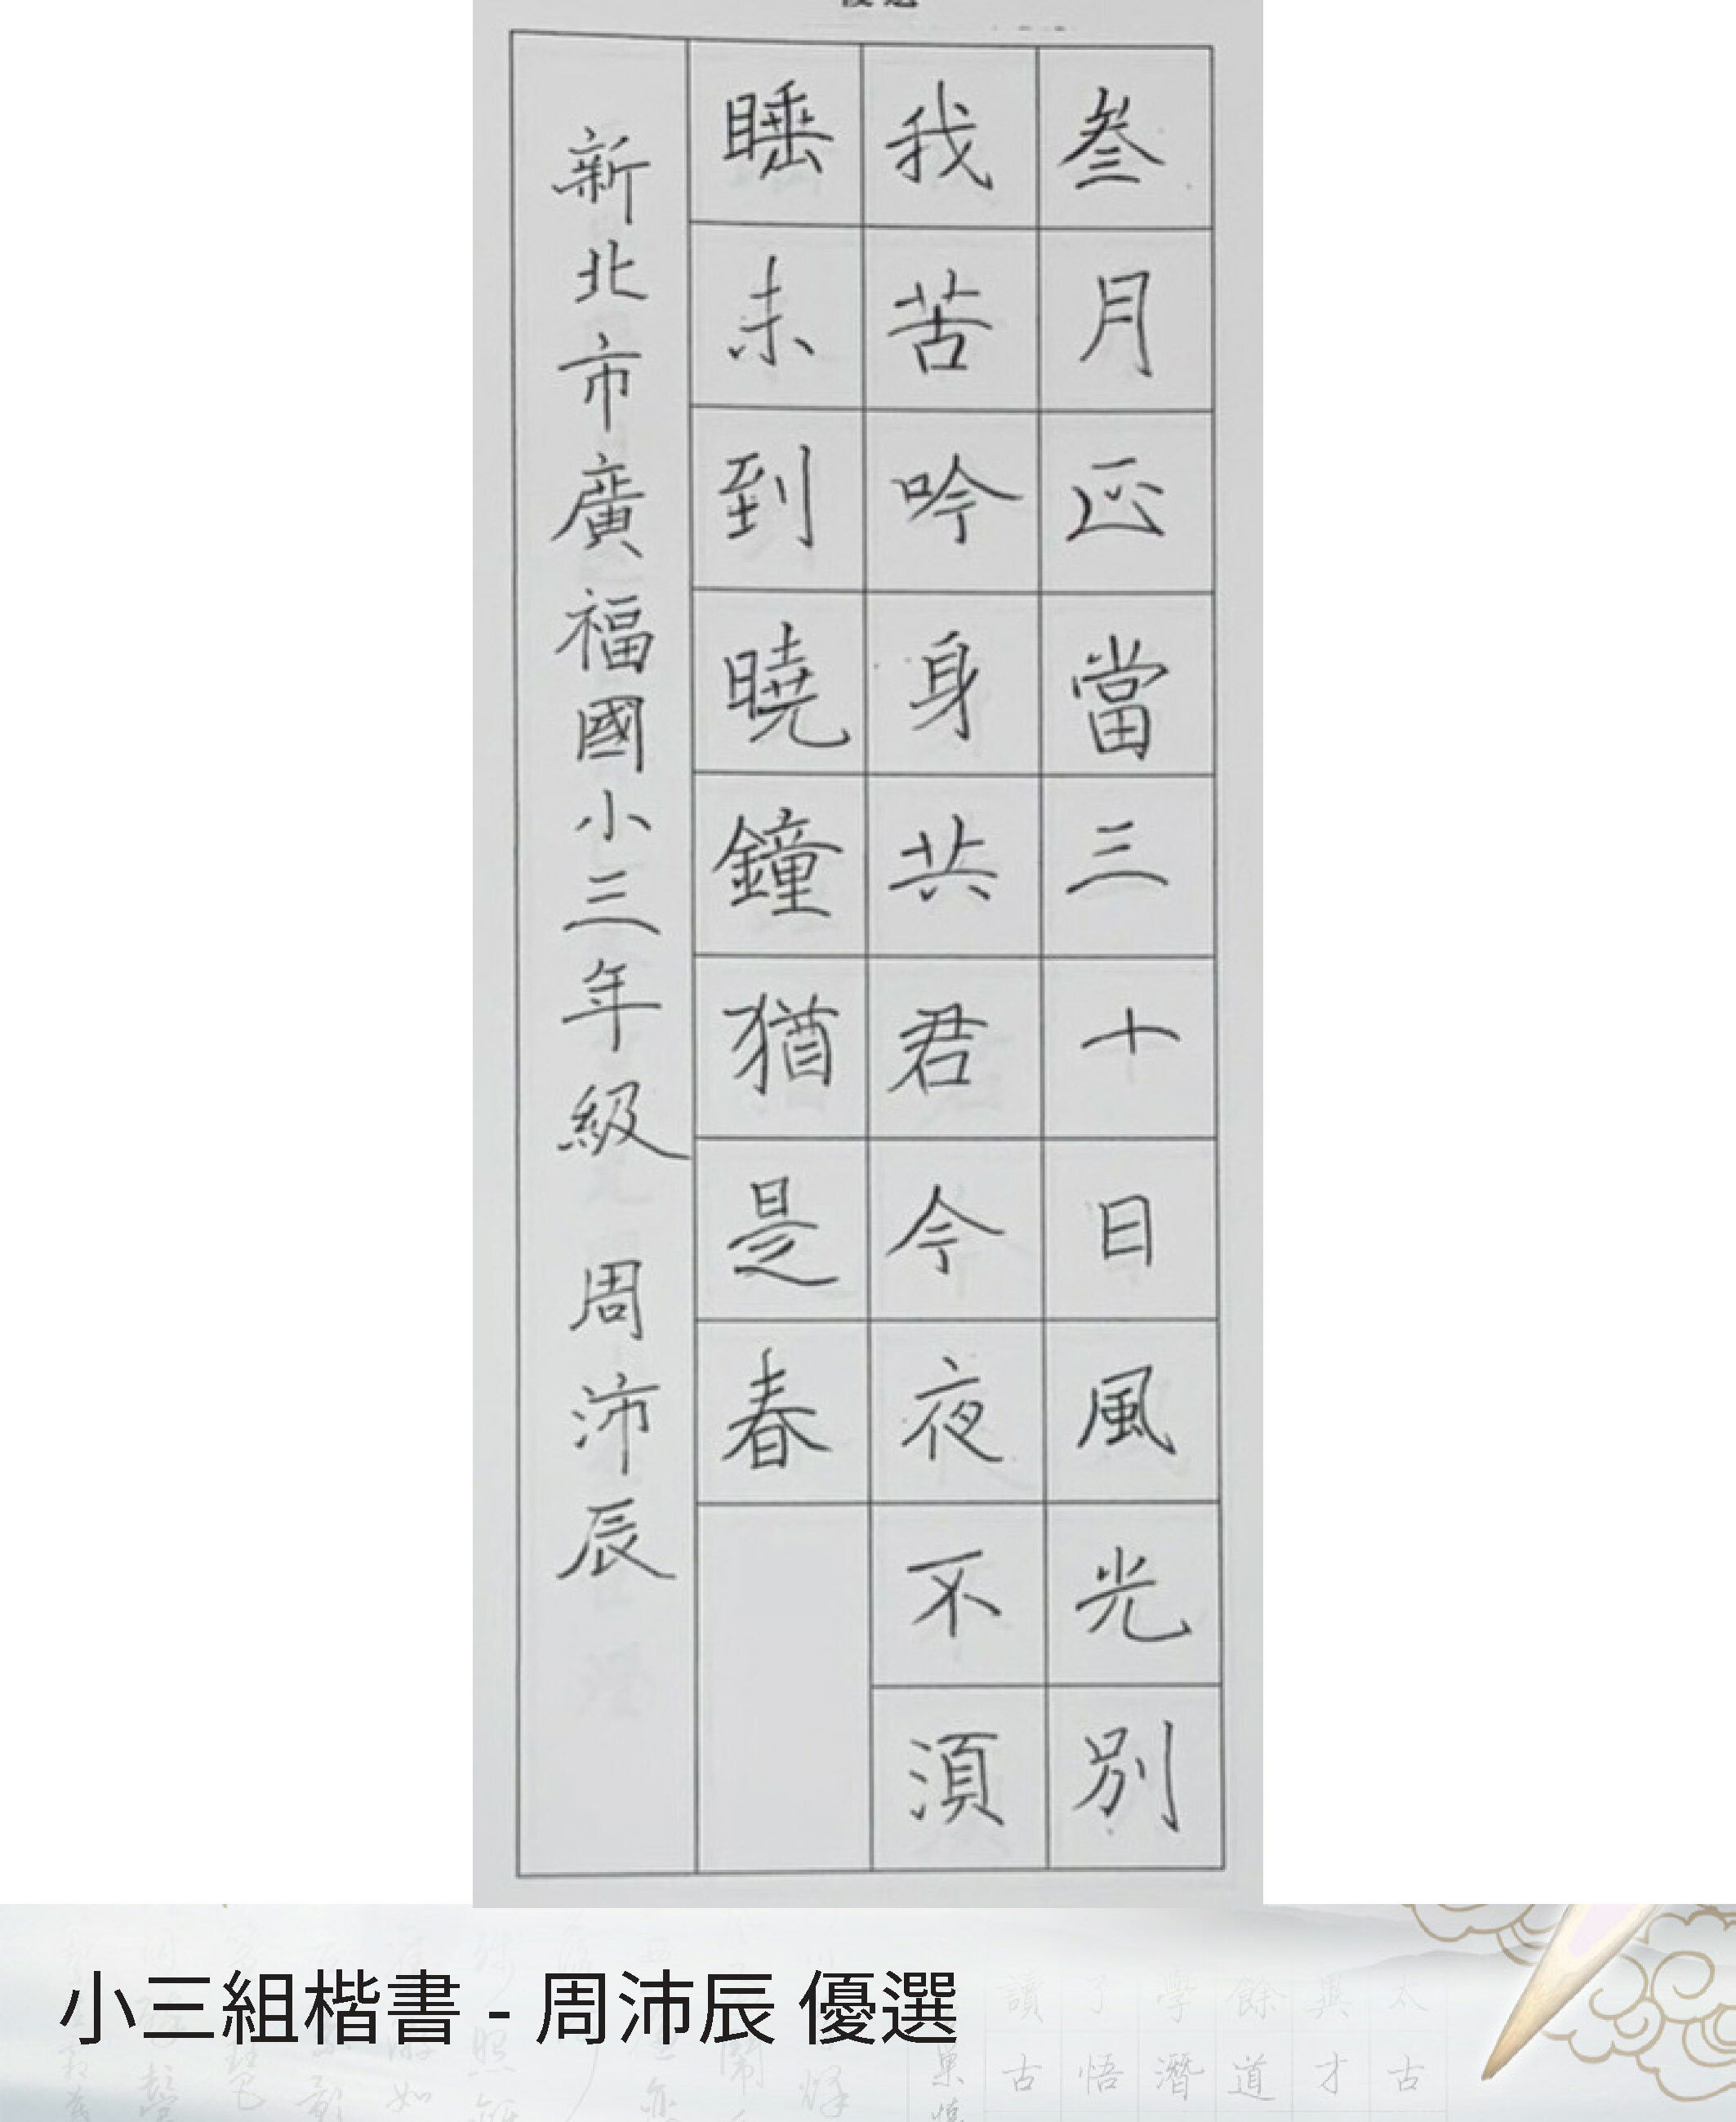 叁月正當三十日風光別
我苦吟身共君今夜不湏
睡未到曉鐘猶是春
新北市廣福國小三年級 周沛辰
小三組楷書 - 周沛辰 優選